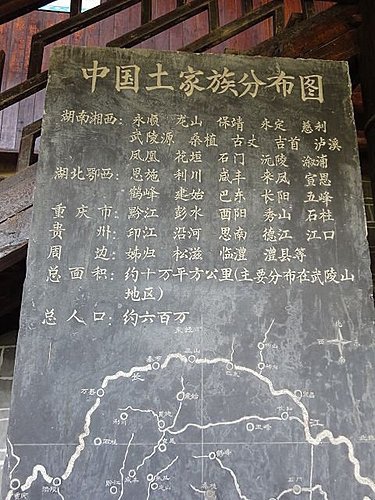 中国土家族分布图
湖南湘西：永顺 龙山 保靖 永定 慈利
武陵源 桑植 古丈 吉首 泸溪
凤凰 花垣 石门 沅陵 溆浦
湖北鄂西：恩施 利川 咸丰 来凤 宣恩
鹤峰 建始 巴东 长阳 五峰
重庆市：黔江 彭水 酉阳 秀山 石柱
贵州：印江 沿河 思南 德江 江口
周边：姊归 松滋 临澧 澧县等
总面积：约十万平方公里(主要分布在武陵山
地区)
总人口：约六百万
北
西
巫山
奉节
长
万县
建始
利川
恩施
五峰
江
石柱
鹤峰
宣恩
咸丰
黔江
石门